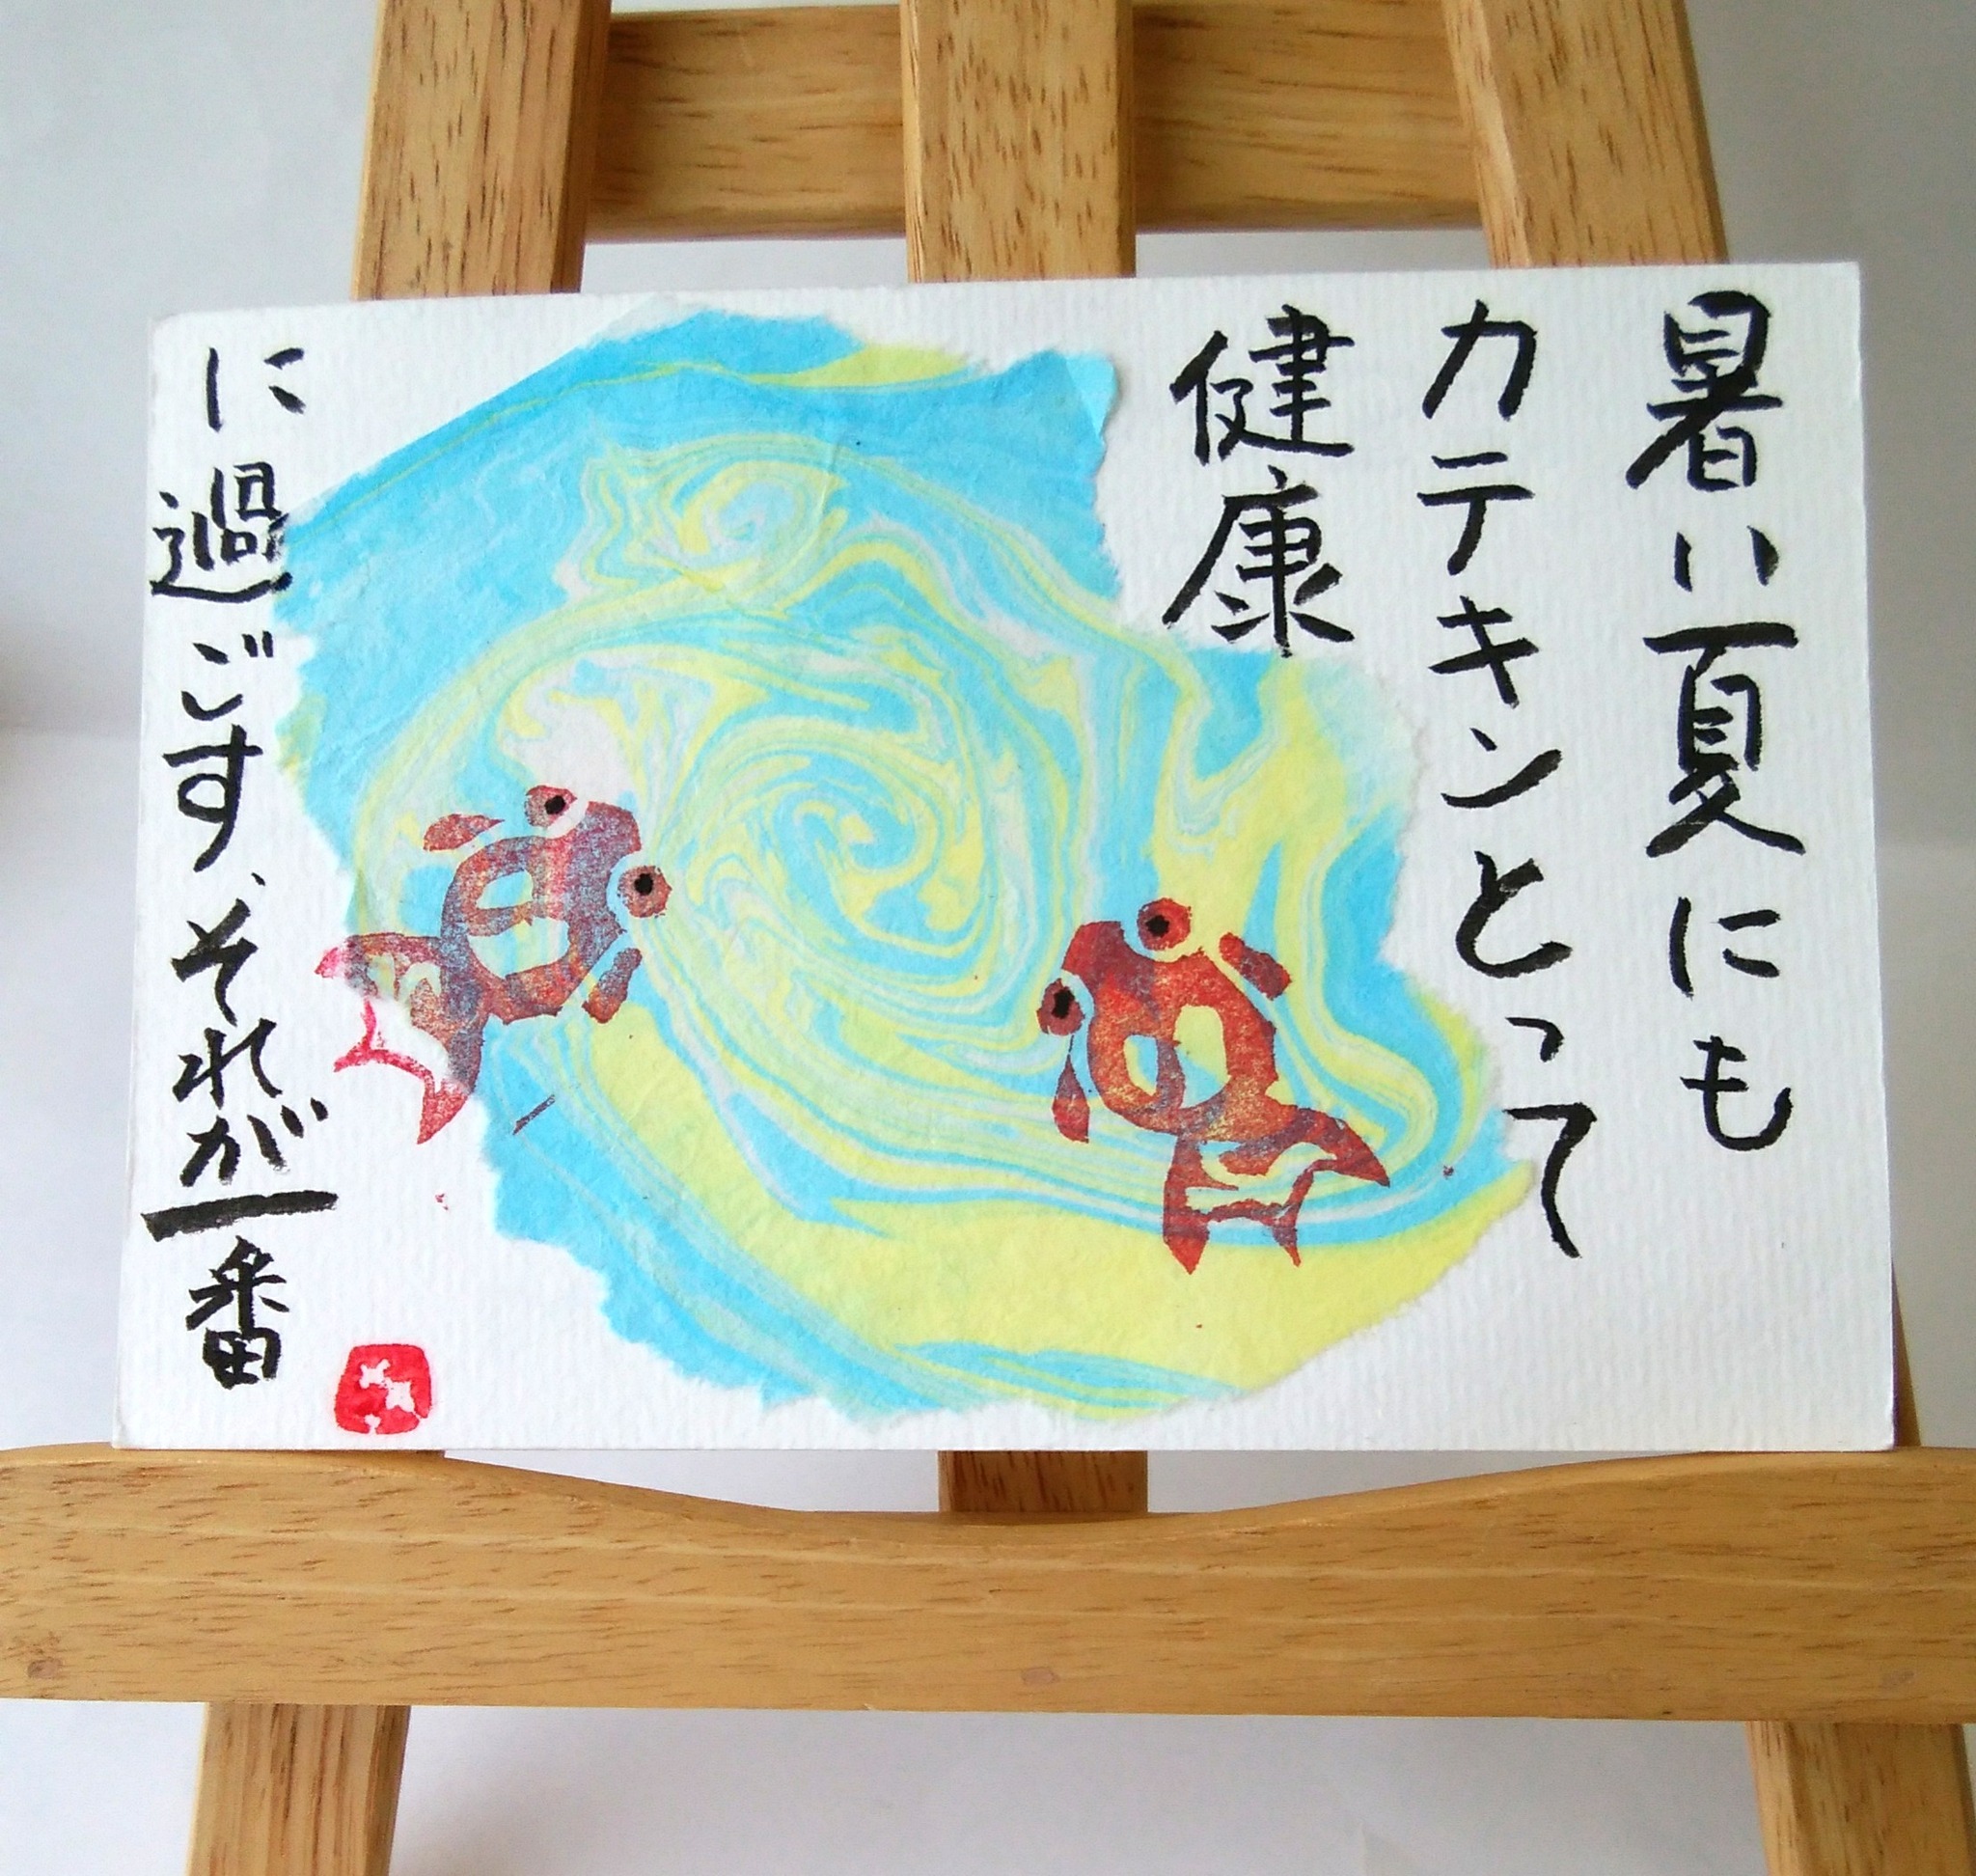 暑い夏にも
カテキンとって
健康
に過ごす、それが一番